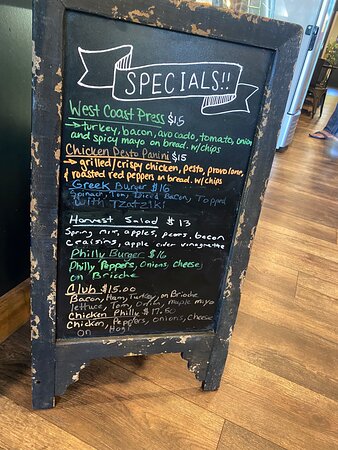 SPECIALS!!
West Coast Press $15
→ turkey, bacon, avocado, tomato, onion
and spicy mayo on bread. w/chips
Chicken Pesto Panini $15
→ grilled/crispy chicken, pesto, provolone,
& roasted red peppers on bread. w/chips
Greek Burger $16
Spinach, Tom, Diced Bacon, Topped
with Tzatziki
Harvest Salad $13
Spring mix, apples, pears, bacon
craisins, apple cider vinagrette
Philly Burger $16
Philly Peppers, Onions, Cheese,
on Brioche
Club $15.00
Bacon, Ham, Turkey, on Brioche
lettuce, Tom, Onion, maple mayo
Chicken Philly $17.50
Chicken, Peppers, onions, Cheese
on Hogi